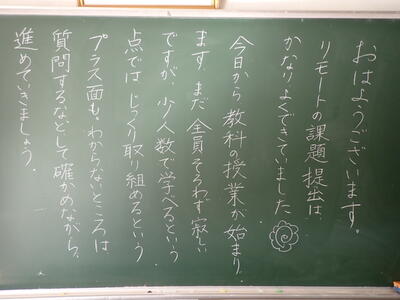 おはようございます。
リモートの課題提出は
かなりよくできていました
今日から教科の授業が始まり
ます。まだ全員そろわず寂しい
ですが、少人数で学べるという
点では じっくり取り組めるという
プラス面も。わからないところは
質問するなどして確かめながら、
進めていきましょう。